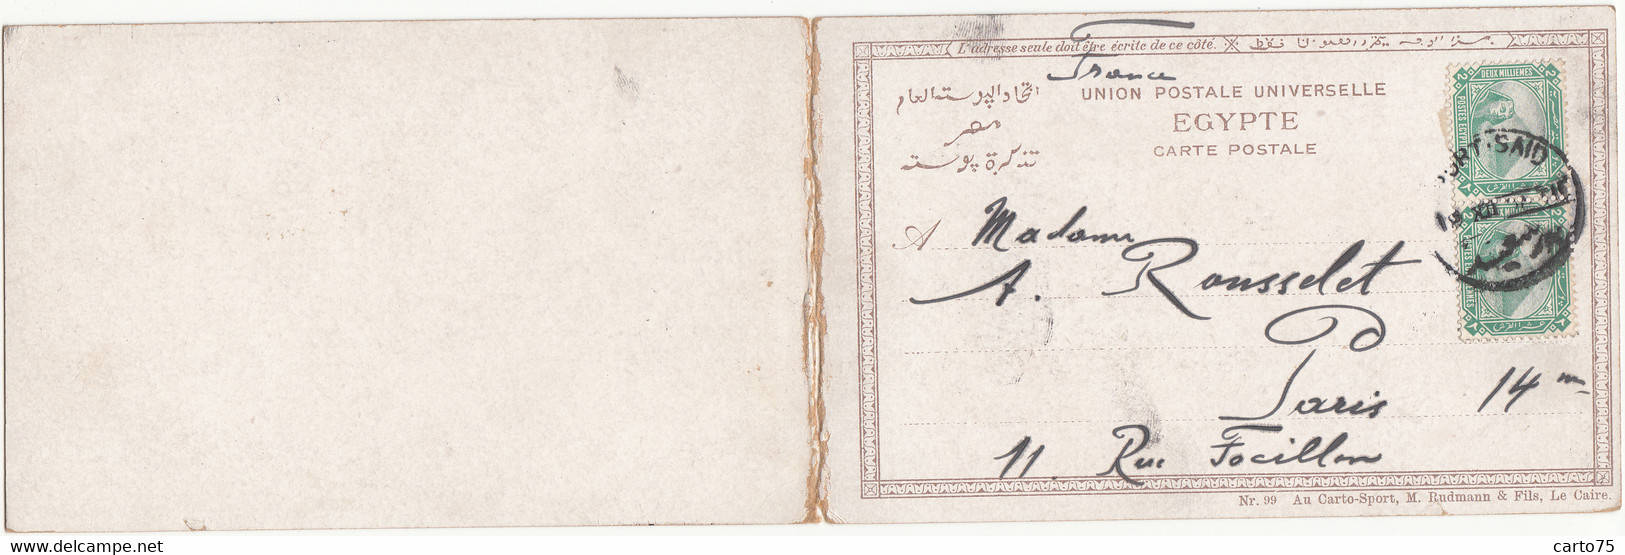 France
L'adresse seule doit être écrite de ce côté.
UNION POSTALE UNIVERSELLE
EGYPTE
CARTE POSTALE
اتحاد البوسته العام
مصر
تذكرة بوسته
2 DEUX MILLIEMES 2
POSTES EGYPT
PORT-SAID
XII
A Madame
A. Rousselet
Paris 14me
11. Rue Focillon
Nr. 99 Au Carto-Sport, M. Rudmann & Fils, Le Caire.
carto75